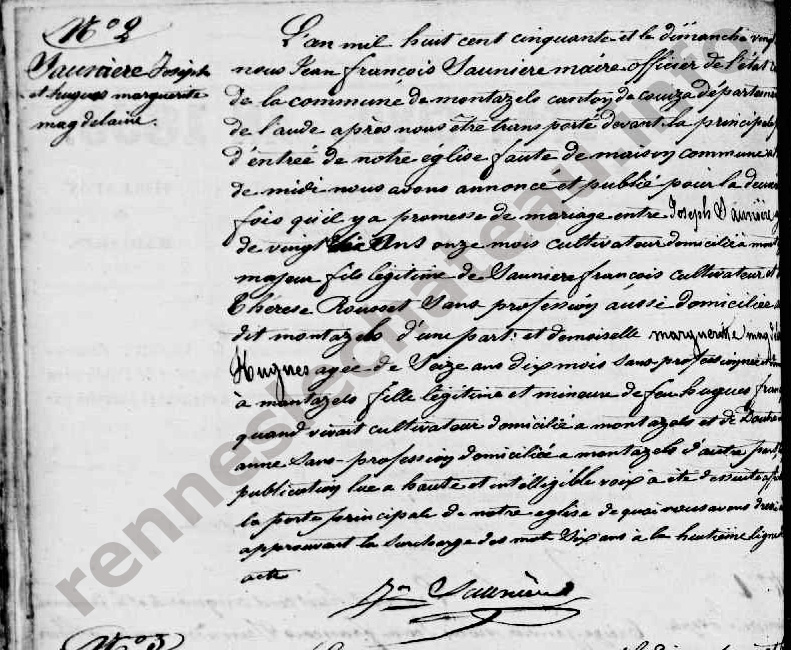 N.º 2
Saunière Joseph
et hugues marguerite
magdelaine.
L'an mil huit cent cinquante et le dimanche
nous Jean françois Saunière maire officier de l'état
de la commune de montazels canton de couiza département
de l'aude après nous être transporté devant la principale
d'entreé de notre église faute de maison commune
de midi nous avons annoncé et publié pour la
fois qu'il y a promesse de mariage entre Joseph Saunière
de vingt dix Ans onze mois cultivateur domicilié à
majeur fils légitime de Saunière françois cultivateur et
Thérèse Rousset Sans profession aussi domicilieé
dit montazels d'une part; et demoiselle marguerite
Hugues ageé de Seize ans dix mois sans profession
à montazels fille légitime et mineure de feu hugues
quand vivait cultivateur domicilié à montazels et de
anne Sans profession domiciliée a montazels d'autre part
publication lue a haute et intelligible voix à été dessuite
la porte principale de notre eglise de quoi nous avons
approuvant la surcharge des mot Dix ans à la huitième ligne
acte
Saunière
N.º 3
renneslechateau.info